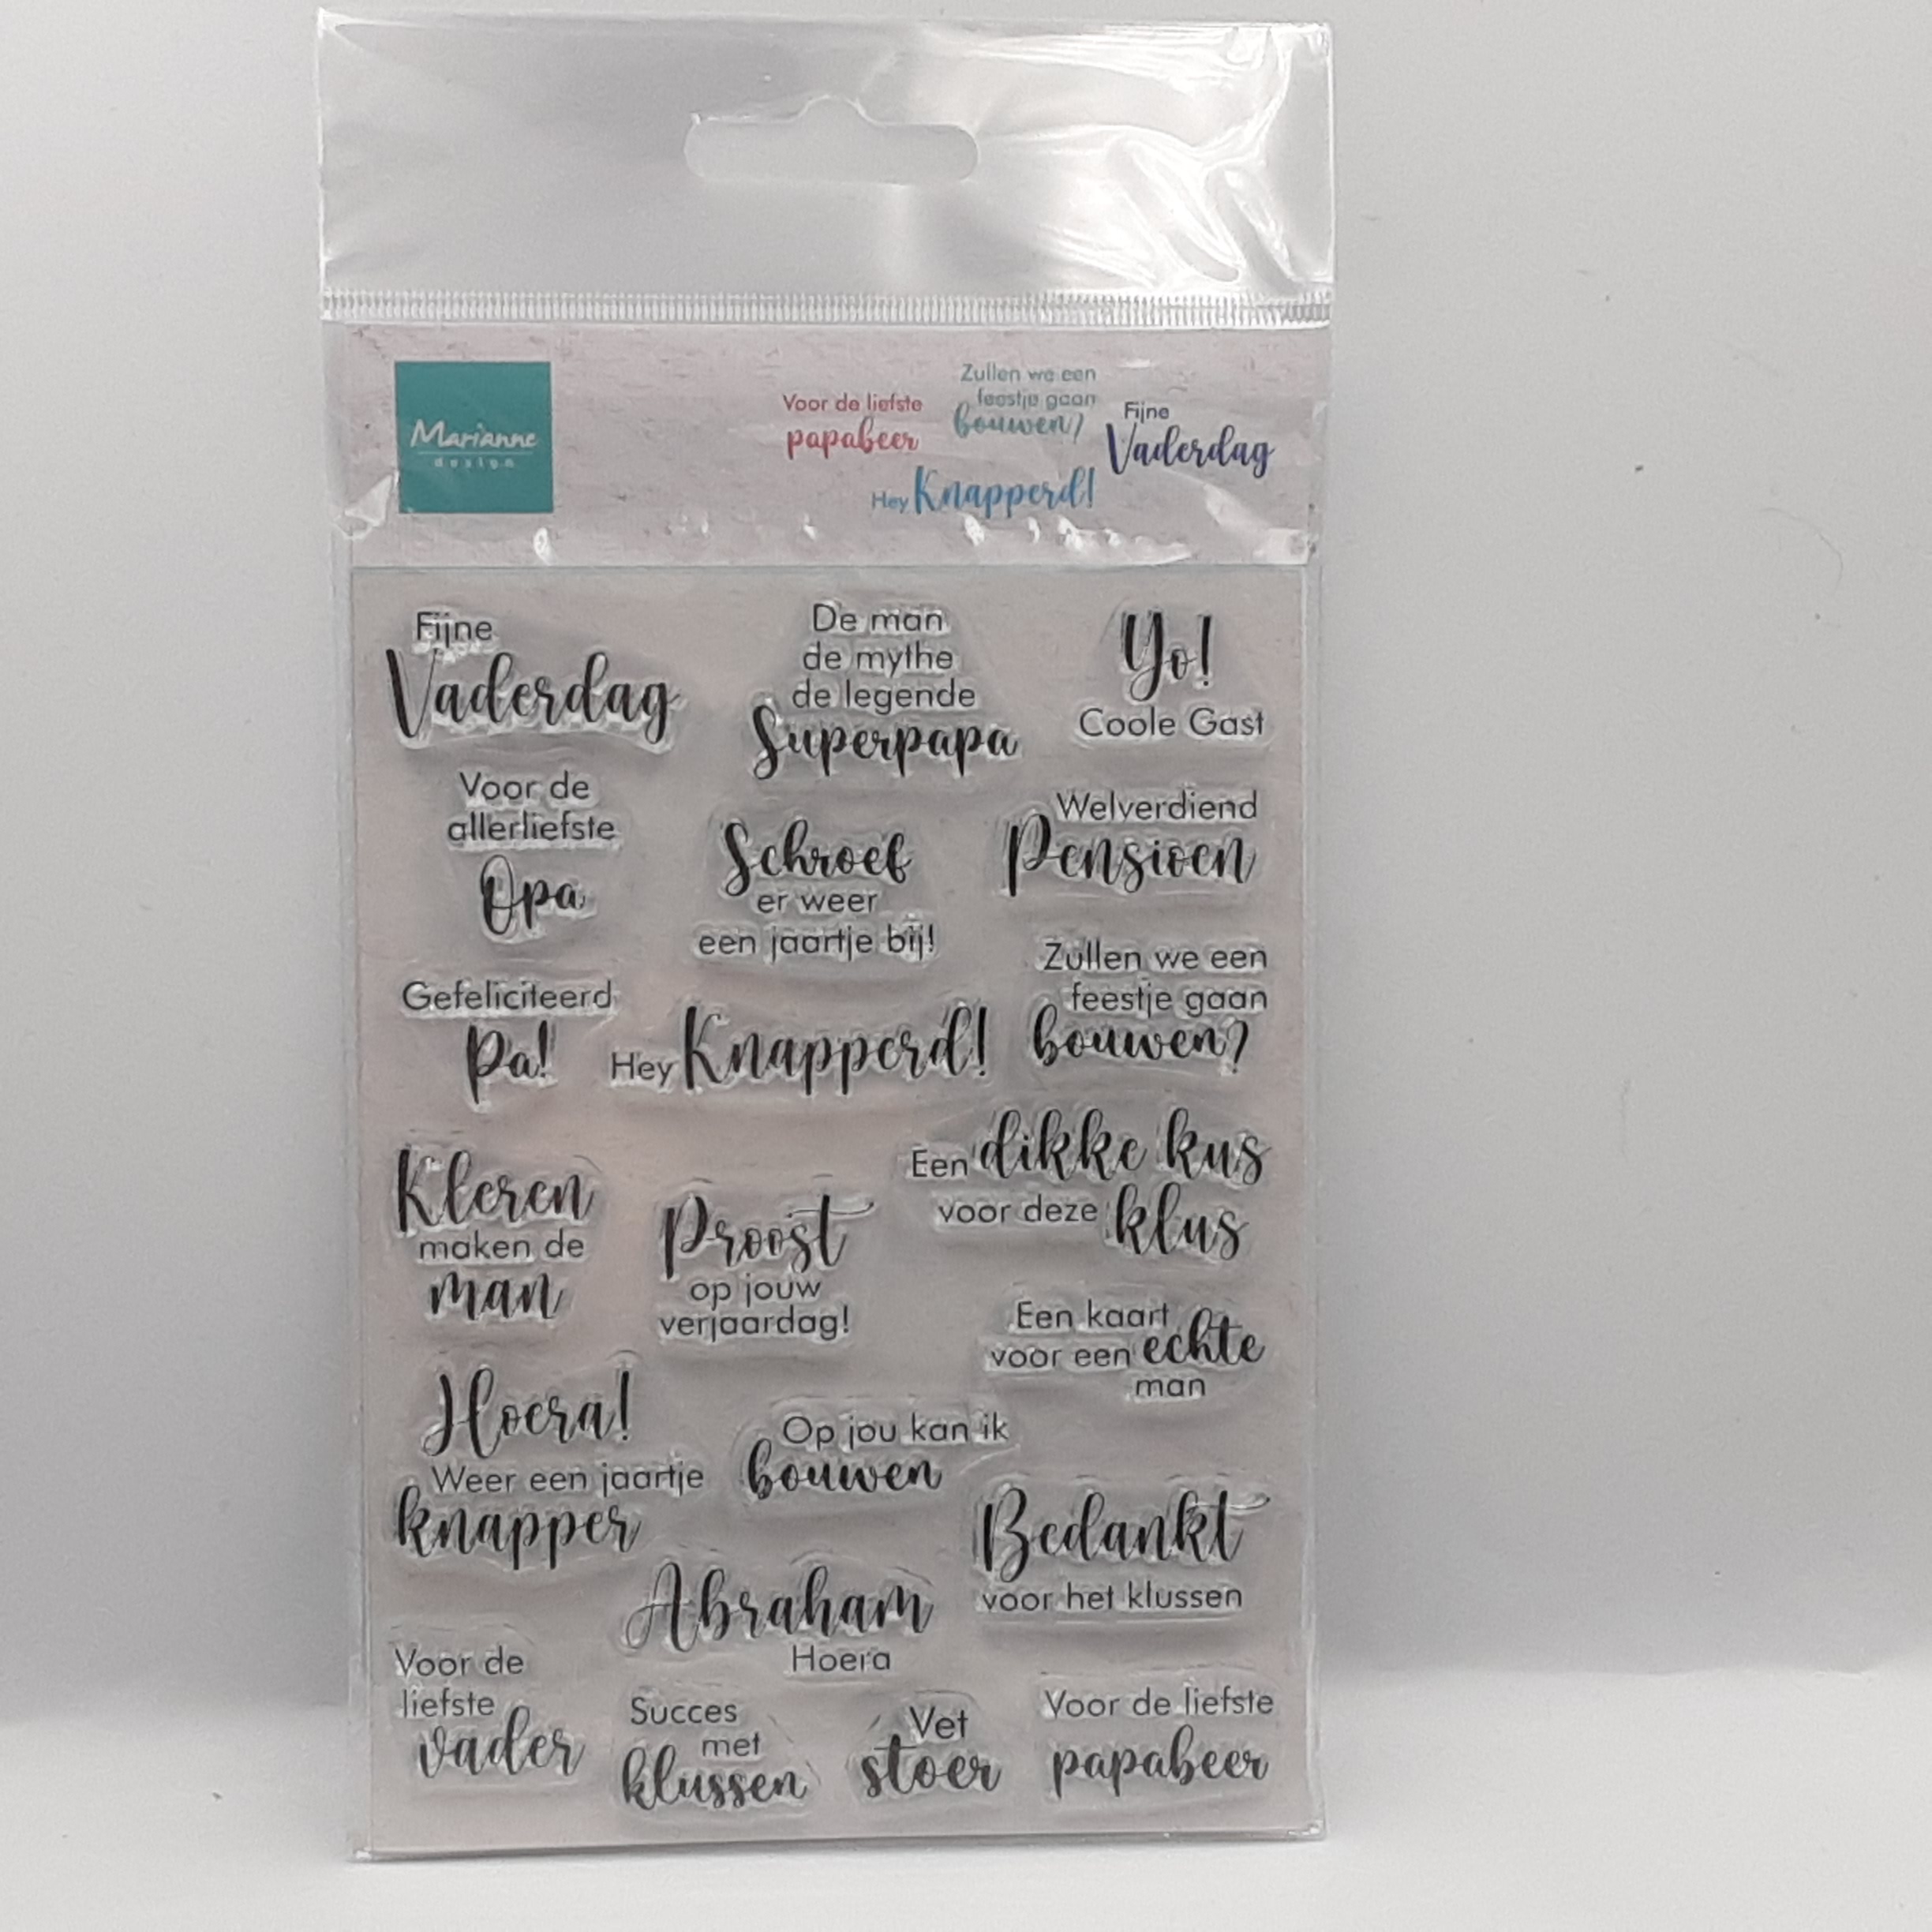 Marianne
design
Voor de liefste
papabeer
Zullen we een
feestje gaan
bouwen?
Fijne
Vaderdag
Hey Knapperd!
Fijne
Vaderdag
De man
de mythe
de legende
Superpapa
Yo!
Coole Gast
Voor de
allerliefste
Opa
Schroef
er weer
een jaartje bij!
Welverdiend
Pensioen
Gefeliciteerd
Pa!
Hey Knapperd!
Zullen we een
feestje gaan
bouwen?
Kleren
maken de
man
Proost
op jouw
verjaardag!
Een dikke kus
voor deze klus
Een kaart
voor een echte
man
Hoera!
Weer een jaartje
knapper
Op jou kan ik
bouwen
Bedankt
voor het klussen
Abraham
Hoera
Voor de
liefste
vader
Succes
met
klussen
Vet
stoer
Voor de liefste
papabeer